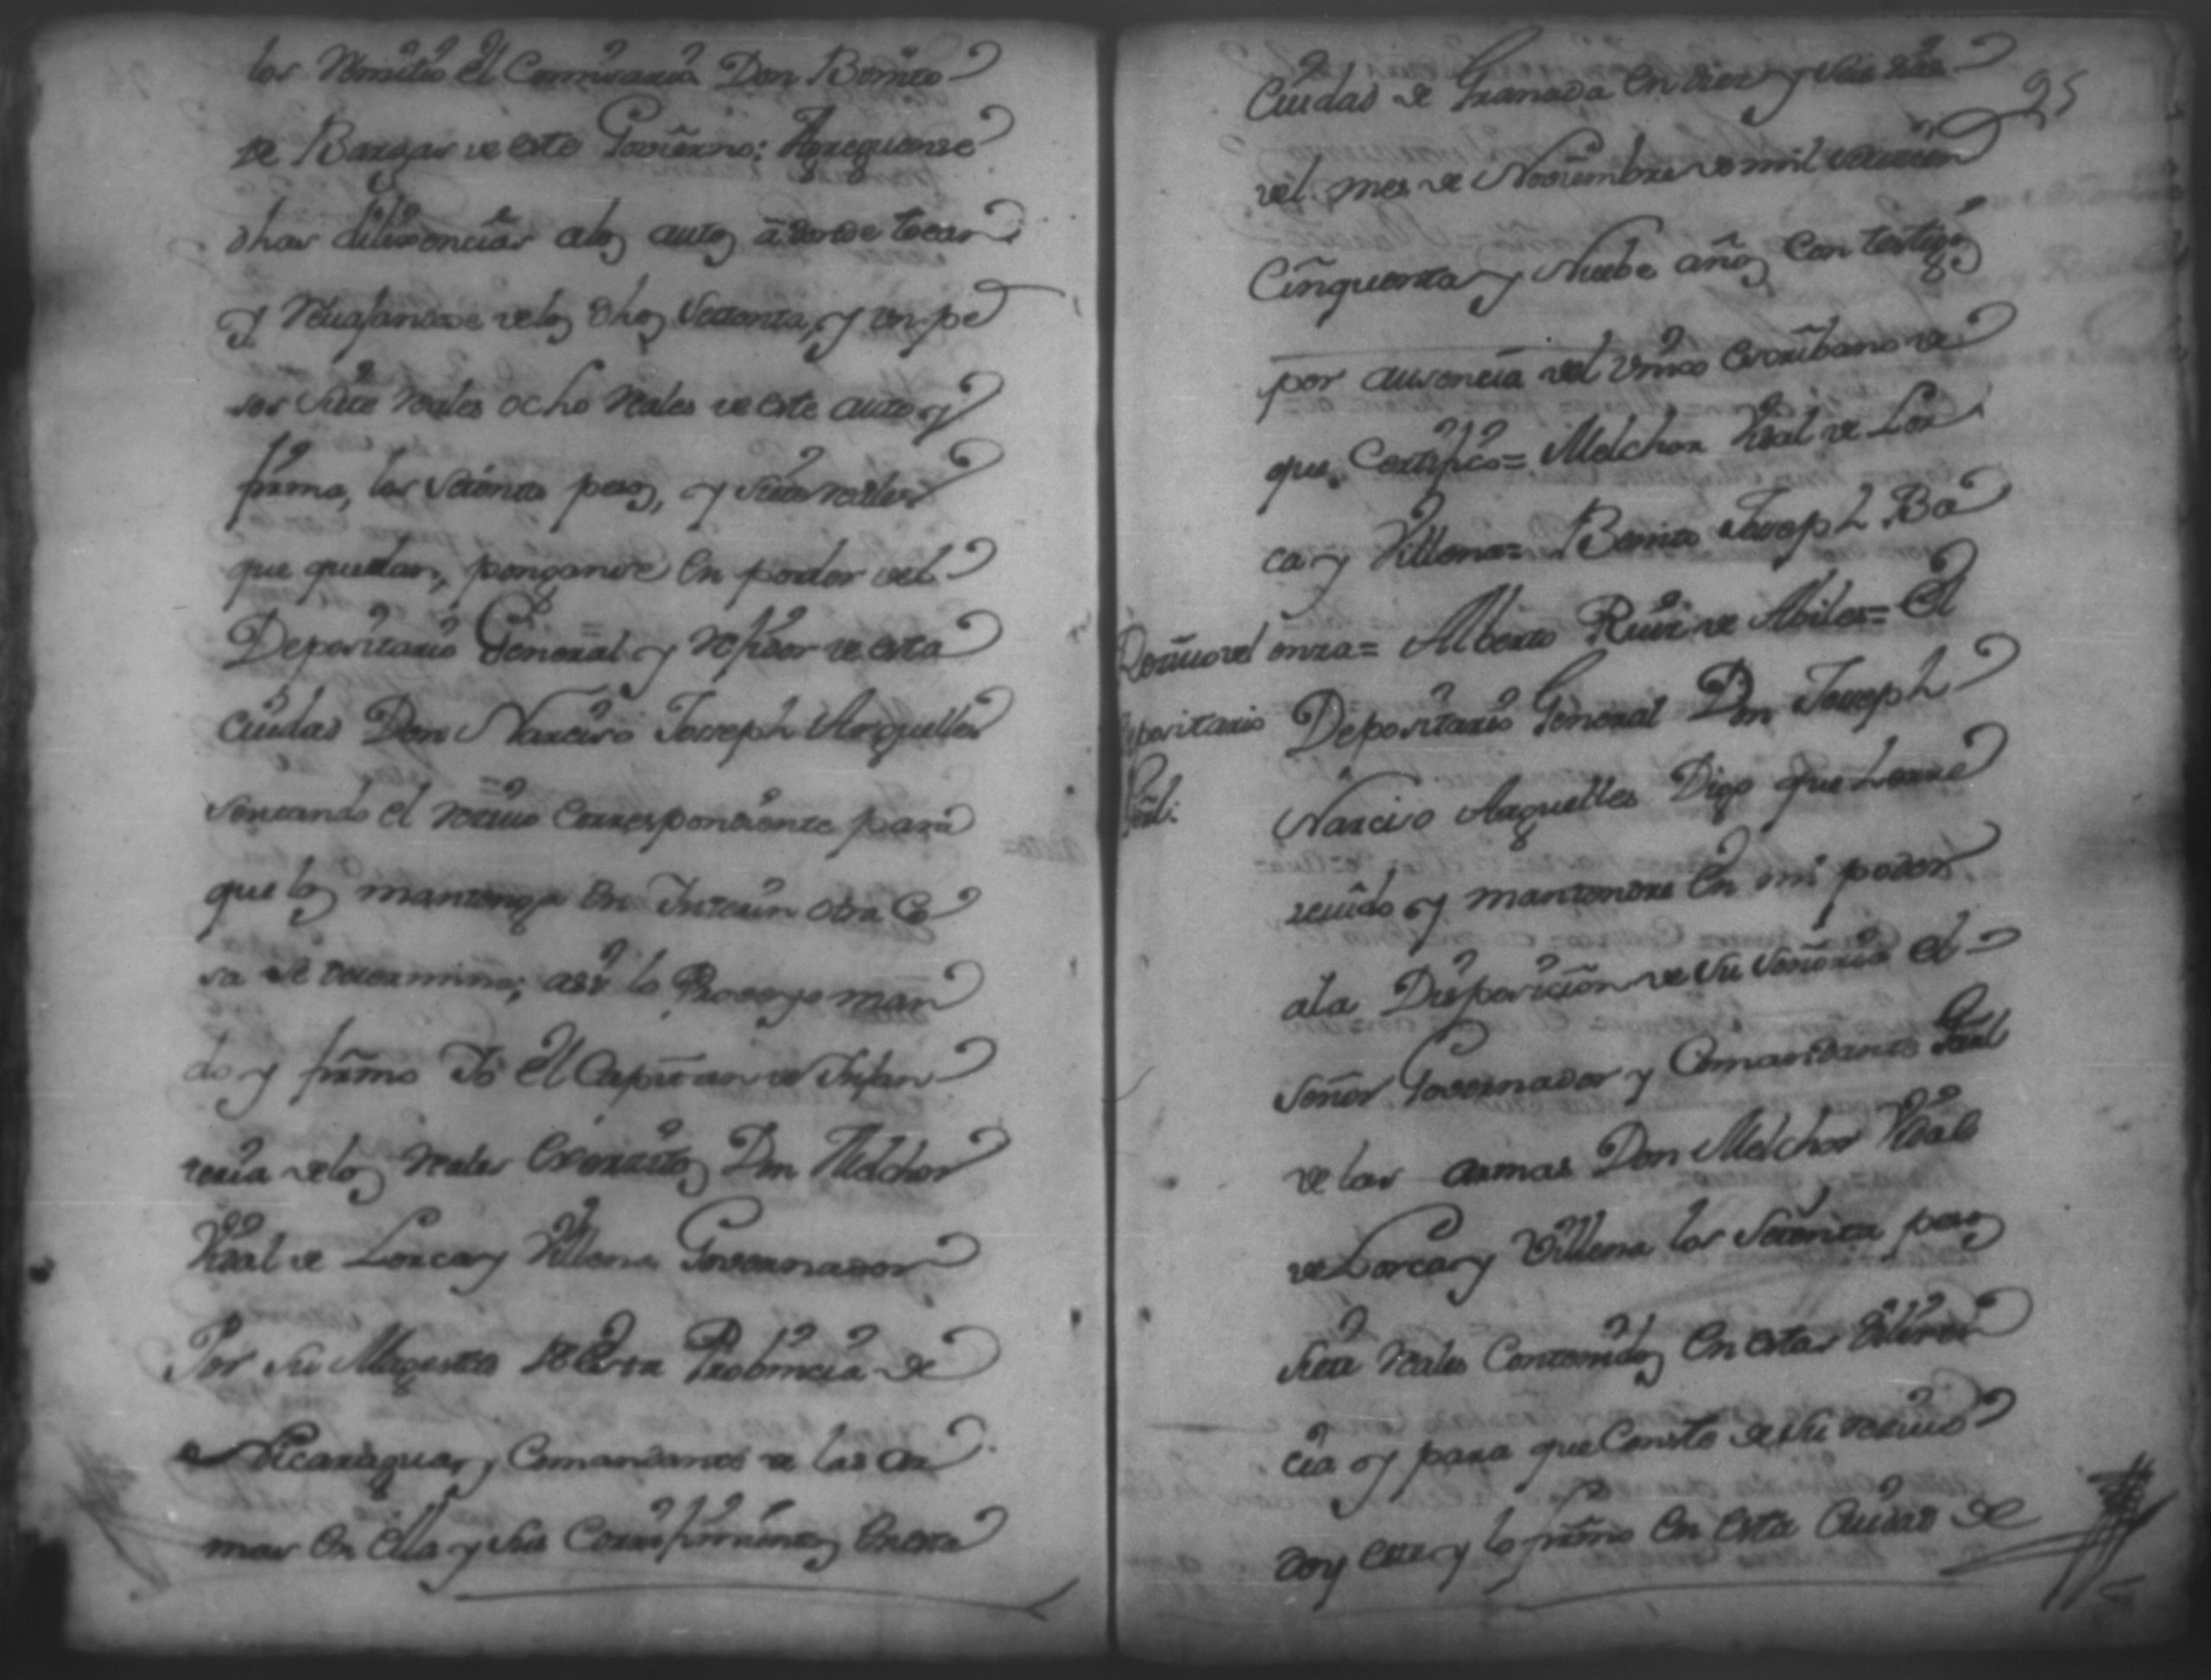 los Remitió el Comisario Don Benito
de Bargas de este Govierno: Agreguense
dhas dilixencias alos autos a donde tocan
y Revajandose delos dhos Settenta, y un pe
sos siete reales ocho reales de este auto y
firma, los setenta pesos, y siete reales
que quedan, ponganse en poder del
Depositario General y rexidor de esta
Ciudad Don Narciso Joseph Arguelles
sentando el reciuo correspondiente para
que los mantenga en Interin otra Co
sa se determina; asi lo Proveyo man
do y firmo Yo el Capitan de Infan
teria delos reales Exercitos Don Melchor
Vidal de Lorca y Villena Governador
Por su Magestad de esta Probincia de
Nicaragua, y Comandante de las Ar
mas en ella y sus Confinantes en esta
25
Ciudad de Granada en diez y seis dias
del mes de Noviembre de mil setecien
Cinquenta y Nuebe años con testigos
por ausencia del vnico escribano de
que Certifico= Melchor Vidal de Lor
ca y Villena= Benito Joseph Ba
enza= Alberto Ruiz de Abiles= El
Reciuo del
Depositario
Gral.
Depositario General Don Joseph
Narciso Arguelles Digo que tengo
reciuido y mantendre en mi poder
ala Disposicion de su señoria el
señor Governador y Comandante Gral
de las armas Don Melchor Vidal
de Lorca y Villena los setenta pesos
siete reales Contenidos en estas dilixen
cia y para que Conste de su reciuo
doy este y lo firmo en esta Ciudad de